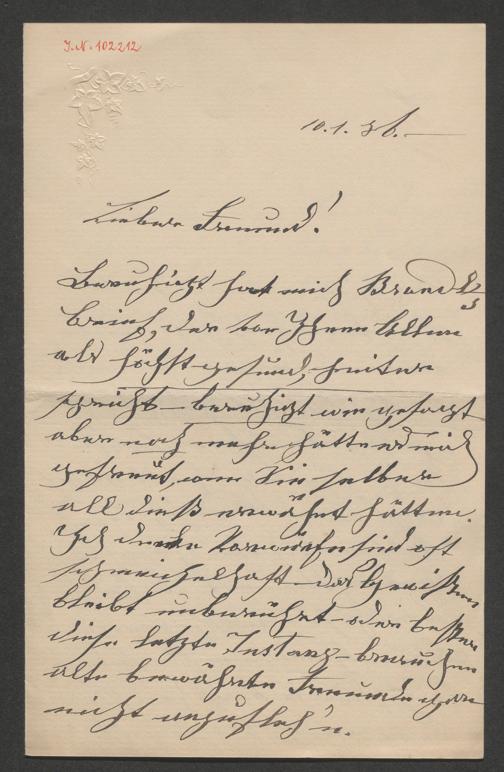 J.N. 102212
10.1.86.
Lieber Freund!
Beruhigt hat mich Brandts
Brief, der von Ihnen Allen
als höchst gesund, heiter
spricht – beruhigt wie gesagt
aber noch mehr hätte es mich
gefreut, wenn Sie selber
all dieß erwähnt hätten.
Ich denke Vorwürfe sind oft
schmeichelhaft – das Gewissen
bleibt unberührt – oder besser
diese letzte Instanz – brauchen
alte bewährte Freunde gar
nicht anzufleh'n.